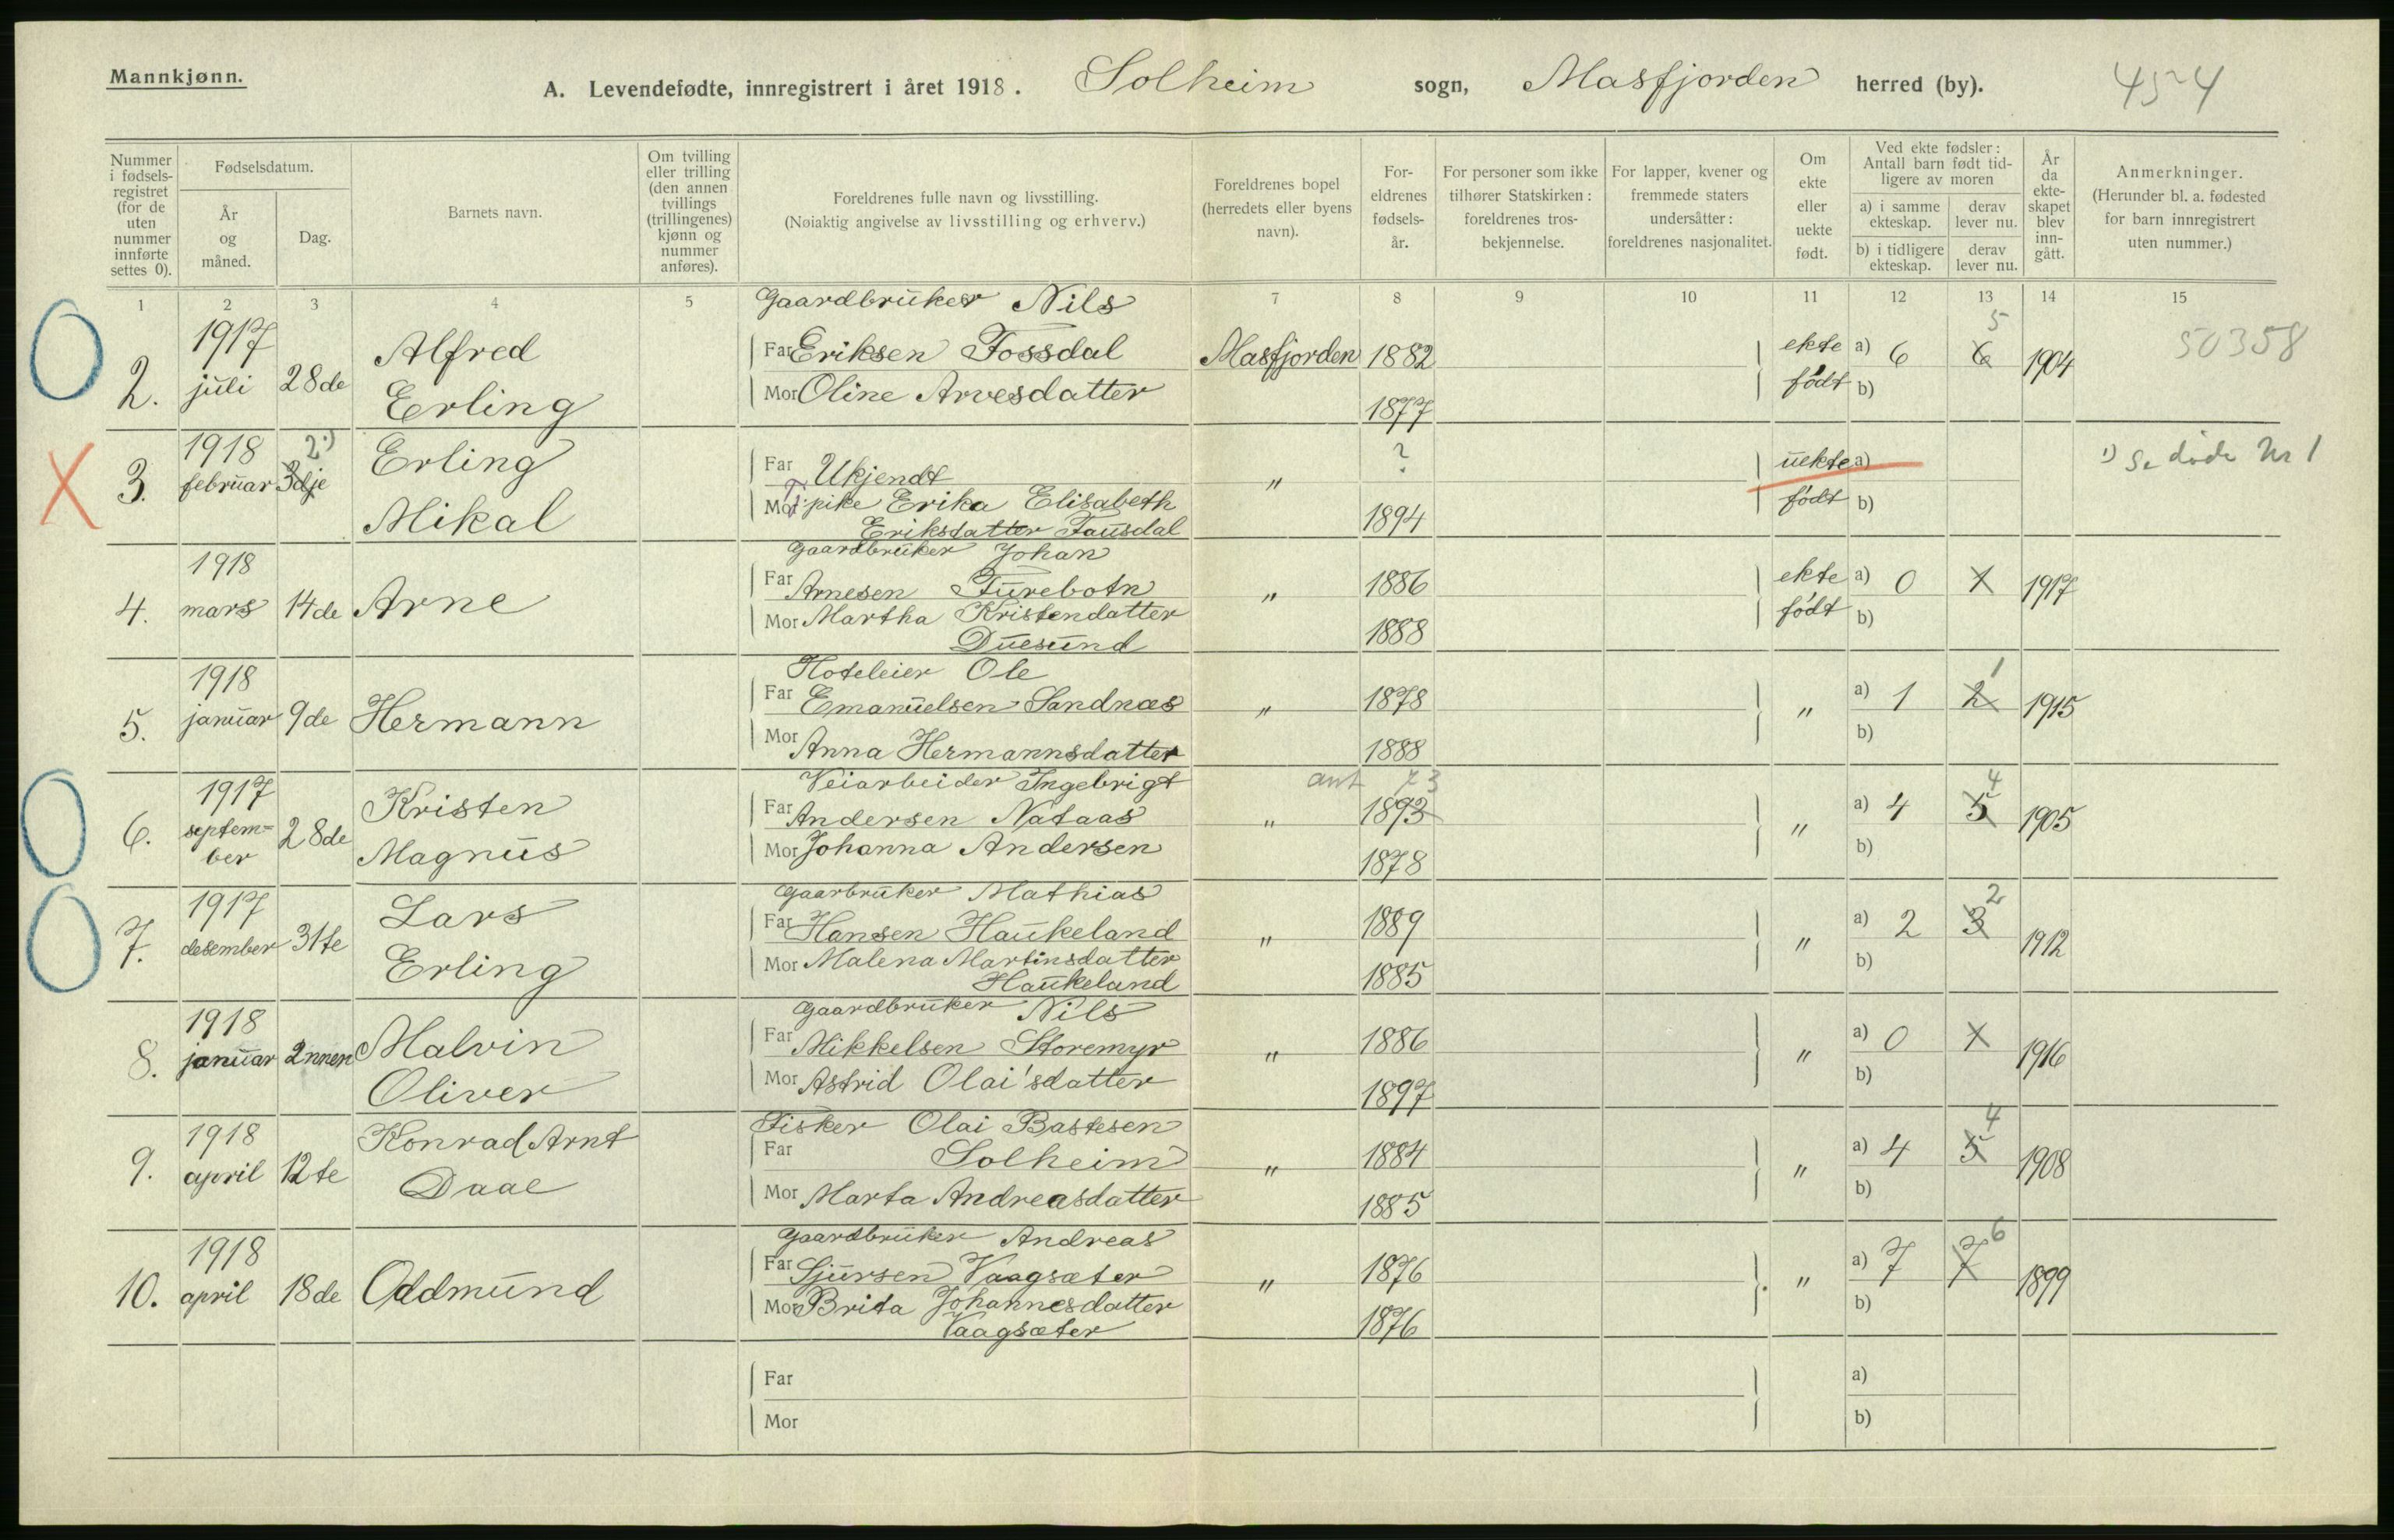 Mannkjønn.
A. Levendefødte, innregistrert i året 1918. Solheim sogn, Masfjorden herred (by). 4524
Nummer i fødsels-registret (for de uten nummer innførte settes 0).
Fødselsdatum.
År og måned.
Dag.
Barnets navn.
Om tvilling eller trilling (den annen tvillings (trillingenes) kjønn og nummer anføres).
Foreldrenes fulle navn og livsstilling.
(Nøiaktig angivelse av livsstilling og erhverv.)
Foreldrenes bopel (herredets eller byens navn).
For-eldrenes fødsels-år.
For personer som ikke tilhører Statskirken: foreldrenes tros-bekjennelse.
For lapper, kvener og fremmede staters undersåtter: foreldrenes nasjonalitet.
Om ekte eller uekte født.
Ved ekte fødsler: Antall barn født tid-ligere av moren
a) i samme ekteskap.
derav lever nu.
b) i tidligere ekteskap.
derav lever nu.
År da ekte-skapet blev inn-gått.
Anmerkninger.
(Herunder bl. a. fødested for barn innregistrert uten nummer.)
1 2 3 4 5 7 8 9 10 11 12 13 14 15
Gaardbruker Nils
2. 1917 juli 28de Alfred Erling
Far Eriksen Fossdal Masfjorden 1882 ekte født a) 6 6 5 1904 50358
Mor Oline Arvesdatter 1877 b)
3. 1918 februar 3dje 2) Erling Mikal
Far Ukjendt " ? uekte født a) 1) Se døde Nr 1
Mor T. pike Erika Elisabeth
Eriksdatter Fausdal 1894 b)
Gaardbruker Johan
4. 1918 mars 14de Arne
Far Arnesen Furebotn " 1886 ekte født a) 0 1 1917
Mor Martha Kristendatter
Duesund 1888 b)
Hoteleier Ole
5. 1918 januar 9de Hermann
Far Emanuelsen Sandnæs " 1878 " a) 1 2 1 1915
Mor Anna Hermannsdatter 1888 b)
Veiarbeider Ingebrigt ant 73
6. 1917 septem=ber 28de Kristen Magnus
Far Andersen Nataas " 1893 " a) 4 5 4 1905
Mor Johanna Andersen 1878 b)
Gaarbruker Mathias
7. 1917 desember 31te Lars Erling
Far Hansen Haukeland " 1889 " a) 2 3 2 1912
Mor Malena Martinsdatter
Haukeland 1885 b)
Gaardbruker Nils
8. 1918 januar 2nnen Malvin Oliver
Far Mikkelsen Storemyr " 1886 " a) 0 1 1916
Mor Astrid Olai'sdatter 1897 b)
Fisker Olai Bastesen
9. 1918 april 12te Konrad Arnt Daae
Far Solheim " 1884 " a) 4 5 4 1908
Mor Marta Andreasdatter 1885 b)
Gaardbruker Andreas
10. 1918 april 18de Oddmund
Far Sjursen Vaagsæter " 1876 " a) 7 7 6 1899
Mor Brita Johannesdatter
Vaagsæter 1876 b)
Far a)
Mor b)